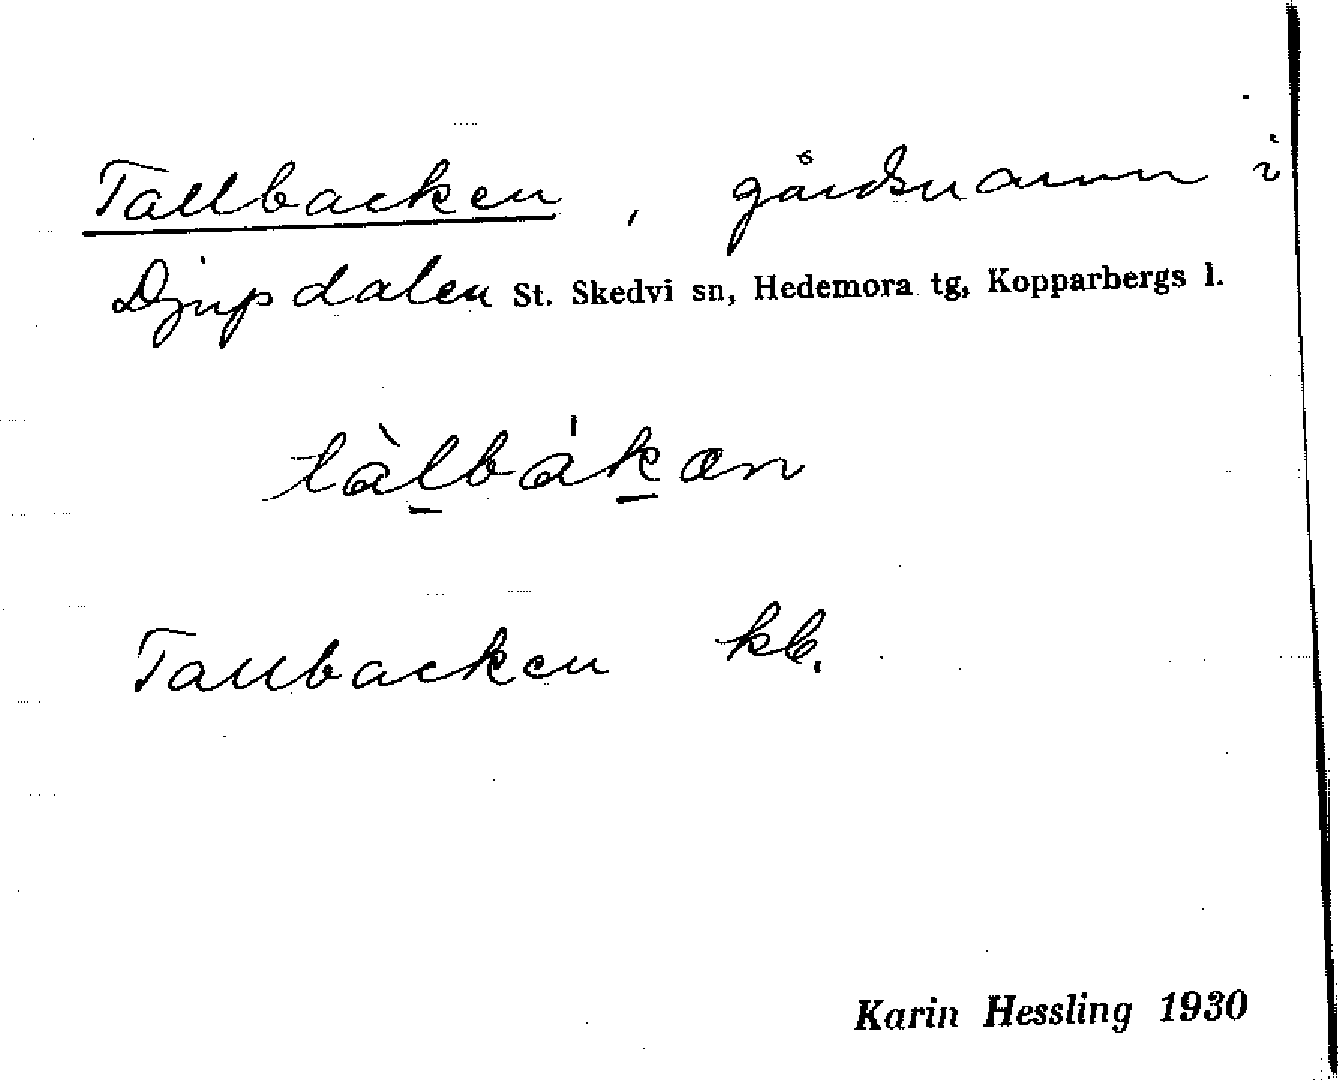 Tallbacken, gårdsnamn i
Djupdalen St. Skedvi sn, Hedemora tg, Kopparbergs l.
tàl̠bák̠ən
Tallbacken kb.
Karin Hessling 1930